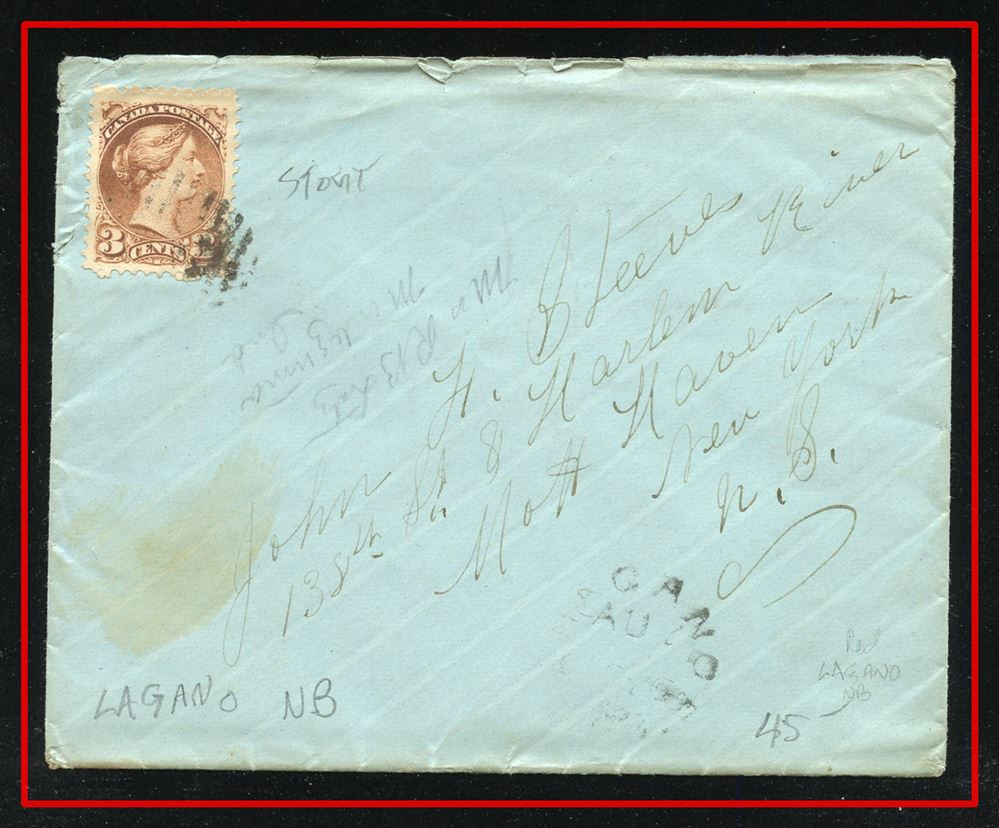 CANADA POSTAGE
3 CENTS
STOUT
John H. Steeves
138th St. & Harlem River
Mott Haven
New York
N.S.
CANO
AU
LAGANO NB
Red
LAGANO
NB
45